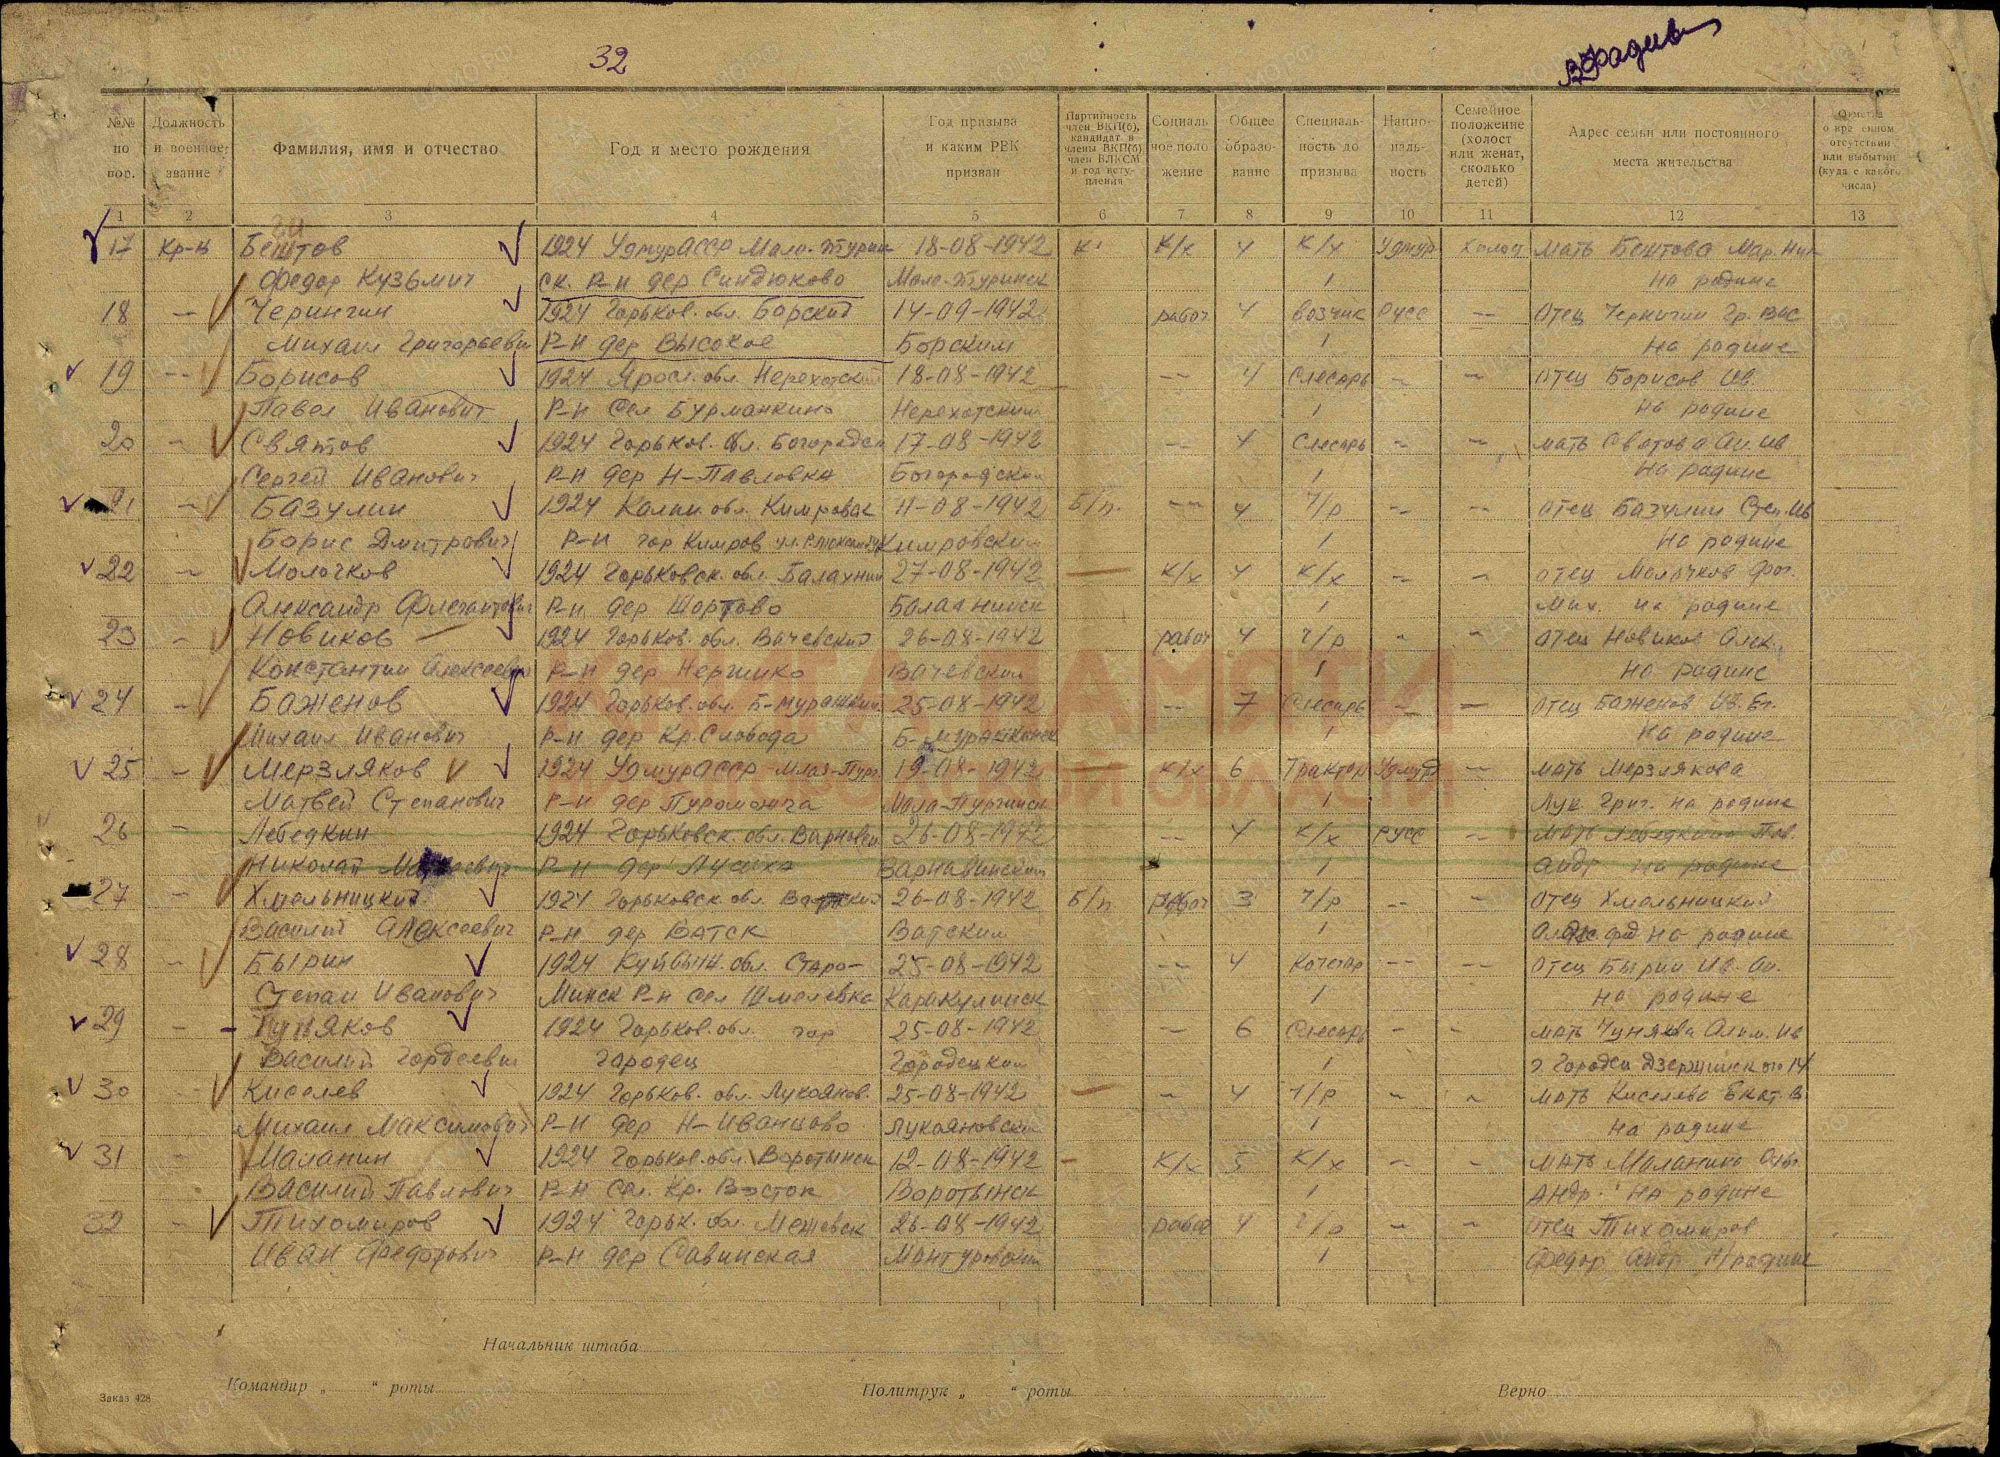 32
ВФадеев
№№ по пос.
Должность и военное звание
Фамилия, имя и отчество
Год и место рождения
Год призыва и каким РВК призван
Партийность член ВКП(б), кандидат в члены ВКП(б) член ВЛКСМ и год вступления
Социальное положение
Общее образование
Специальность до призыва
Национальность
Семейное положение (холост или женат, сколько детей)
Адрес семьи или постоянного места жительства
1 2 3 4 5 6 7 8 9 10 11 12 13
17 Кр-ц Бештов 1924 УдмурАССР Мало- 18-08-1942 К/х 4 К/х Удмур Холост Мать Бештова Мар. Ник
Федор Кузьмич ск. Р-н дер Синдюково 1 на родине
18 — Черингин 1924 Горьков. обл. Борский 14-09-1942 рабоч 4 возчик Русс — Отец Гр. Вас
Михаил Григорьевич Р-н дер Высокое Борским 1 на родине
19 — Борисов 1924 Яросл. обл. Нерехотский 18-08-1942 — 4 Слесарь — — отец Борисов Ив.
Павел Иванович Р-н Сел Бурмакино Нерехотским 1 на родине
20 — Святов 1924 Горьков. обл. Богородск 17-08-1942 — 4 Слесарь — — мать Святова Ив
Сергей Иванович Р-н дер Н-Павловка Богородским 1 на родине
21 — Базулин 1924 Калин. обл. Кимровск 11-08-1942 Б/п. — 4 Ч/р — — отец Базулин
Борис Дмитрович Р-н гор Кимров Кимровским 1 на родине
22 — Молочков 1924 Горьковск. обл. Балахнин 27-08-1942 — К/х 4 К/х — — отец Молочков
Александр Р-н дер Шортово Балахнинск 1 Мих. на родине
23 — Новиков 1924 Горьков. обл. Вачевский 26-08-1942 рабоч 4 Ч/р — — отец Новиков Алек.
Константин Алексеевич Р-н дер Вачевским 1 на родине
24 — Баженов 1924 Горьков. обл. Б-мурашкин 25-08-1942 — 7 Слесарь — — отец Баженов Ив. Ег.
Михаил Иванович Р-н дер Кр. Слобода Б-мурашкинск 1 на родине
25 — Мерзляков 1924 УдмурАССР 19-08-1942 — К/х 6 Тракто Удмур — мать Мерзлякова
Матвей Степанович Р-н дер Мало-Пургинск 1 Лук. Григ. на родине
26 — Лебедкин 1924 Горьковск. обл. Варнавин 26-08-1942 — 4 К/х Русс — мать Лебедкина
Николай Р-н дер Лусиха Варнавинским 1 Андр на родине
27 — Хмельницкий 1924 Горьковск. обл. 26-08-1942 Б/п рабоч 3 Ч/р — — отец Хмельницкий
Василий Алексеевич Р-н дер Ватск Ватским 1 на родине
28 — Бырин 1924 Куйбыш. обл. Старо- 25-08-1942 — 4 Кочегар — — отец Бырин Ив.
Степан Иванович Минск Р-н Сел Шмелевка Каракулинск 1 на родине
29 — Чуняков 1924 Горьков. обл. гор 25-08-1942 — 6 Слесарь — — мать Чунякова Ив
Василий Гордеевич Городец Городецким 1 г. Городец Дзержинского 14
30 Киселев 1924 Горьков. обл. Лукоянов. 25-08-1942 — — 4 Ч/р — — мать Киселева Екат. В.
Михаил Максимович Р-н дер Н-Иванцово Лукояновским 1 на родине
31 — Маланин 1924 Горьков. обл. Воротынск 12-08-1942 — К/х 5 К/х — — мать Маланина
Василий Павлович Р-н Сел. Кр. Восток Воротынск 1 Андр. на родине
32 — Тихомиров 1924 Горьк. обл. Межевск 26-08-1942 рабоч 4 Ч/р — — отец Тихомиров
Иван Федорович Р-н дер Савинская Мантуровским 1 Федор Андр Н/родине
КНИГА ПАМЯТИ
НИЖЕГОРОДСКОЙ ОБЛАСТИ
Начальник штаба
Командир „ “ роты
Политрук „ “ роты
Верно
Заказ 428